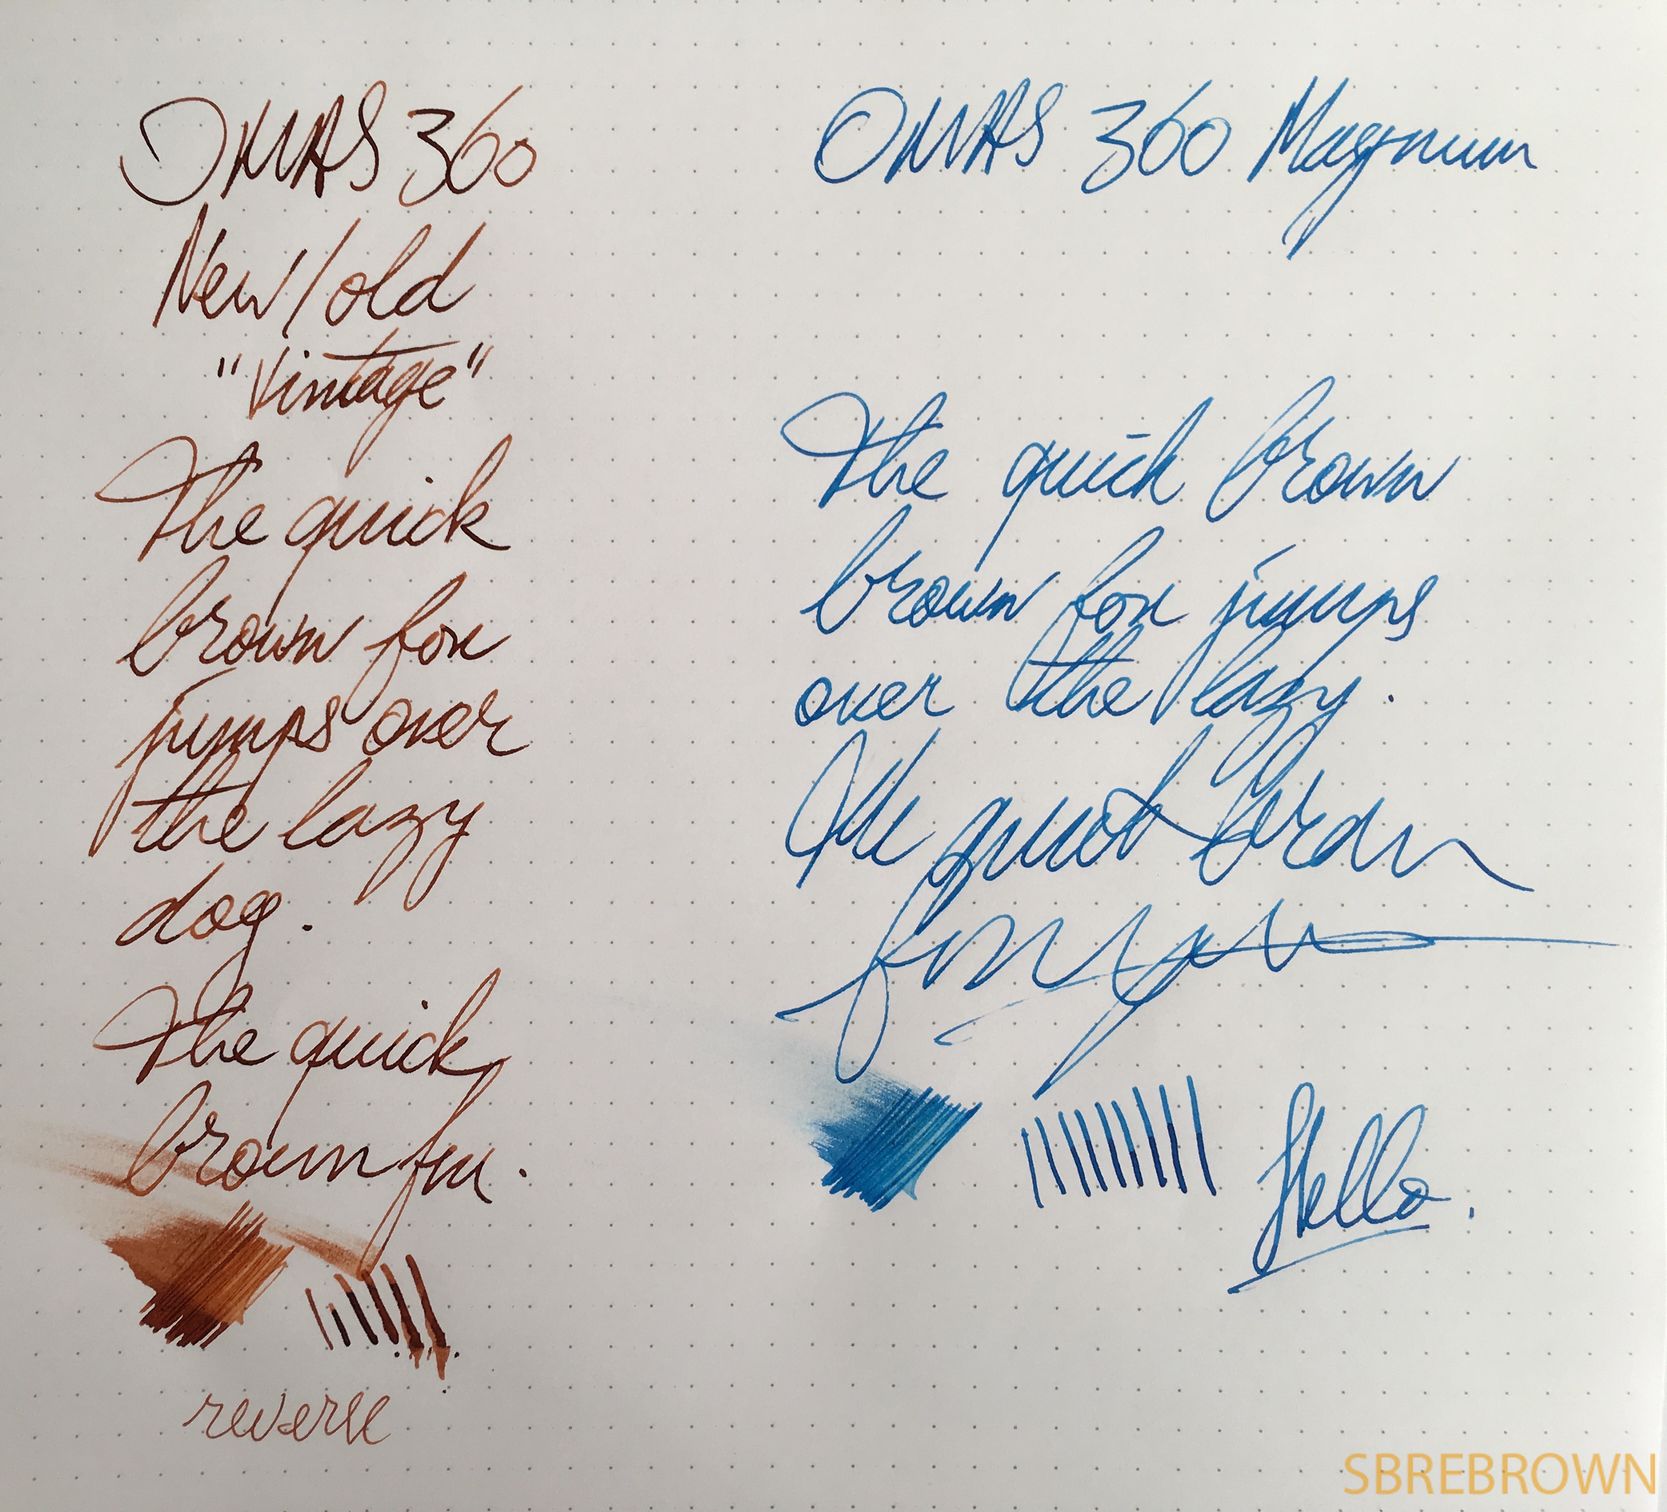 OMAS 360
New/old
"Vintage"
The quick
brown fox
jumps over
the lazy
dog.
The quick
brown fox.
reverse
OMAS 360 Magnum
The quick brown
brown fox jumps
over the lazy.
The quick brown
fox
Hello.
SBREBROWN